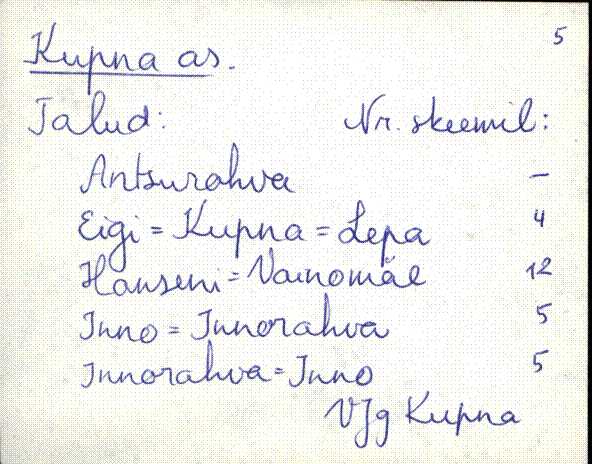 5
Kupna as.
Talud: Nr. skeemil:
Antsurahva –
Eigi = Kupna = Lepa 4
Hanseni = Vainomäe 12
Inno = Innorahva 5
Innorahva = Inno 5
VJg Kupna